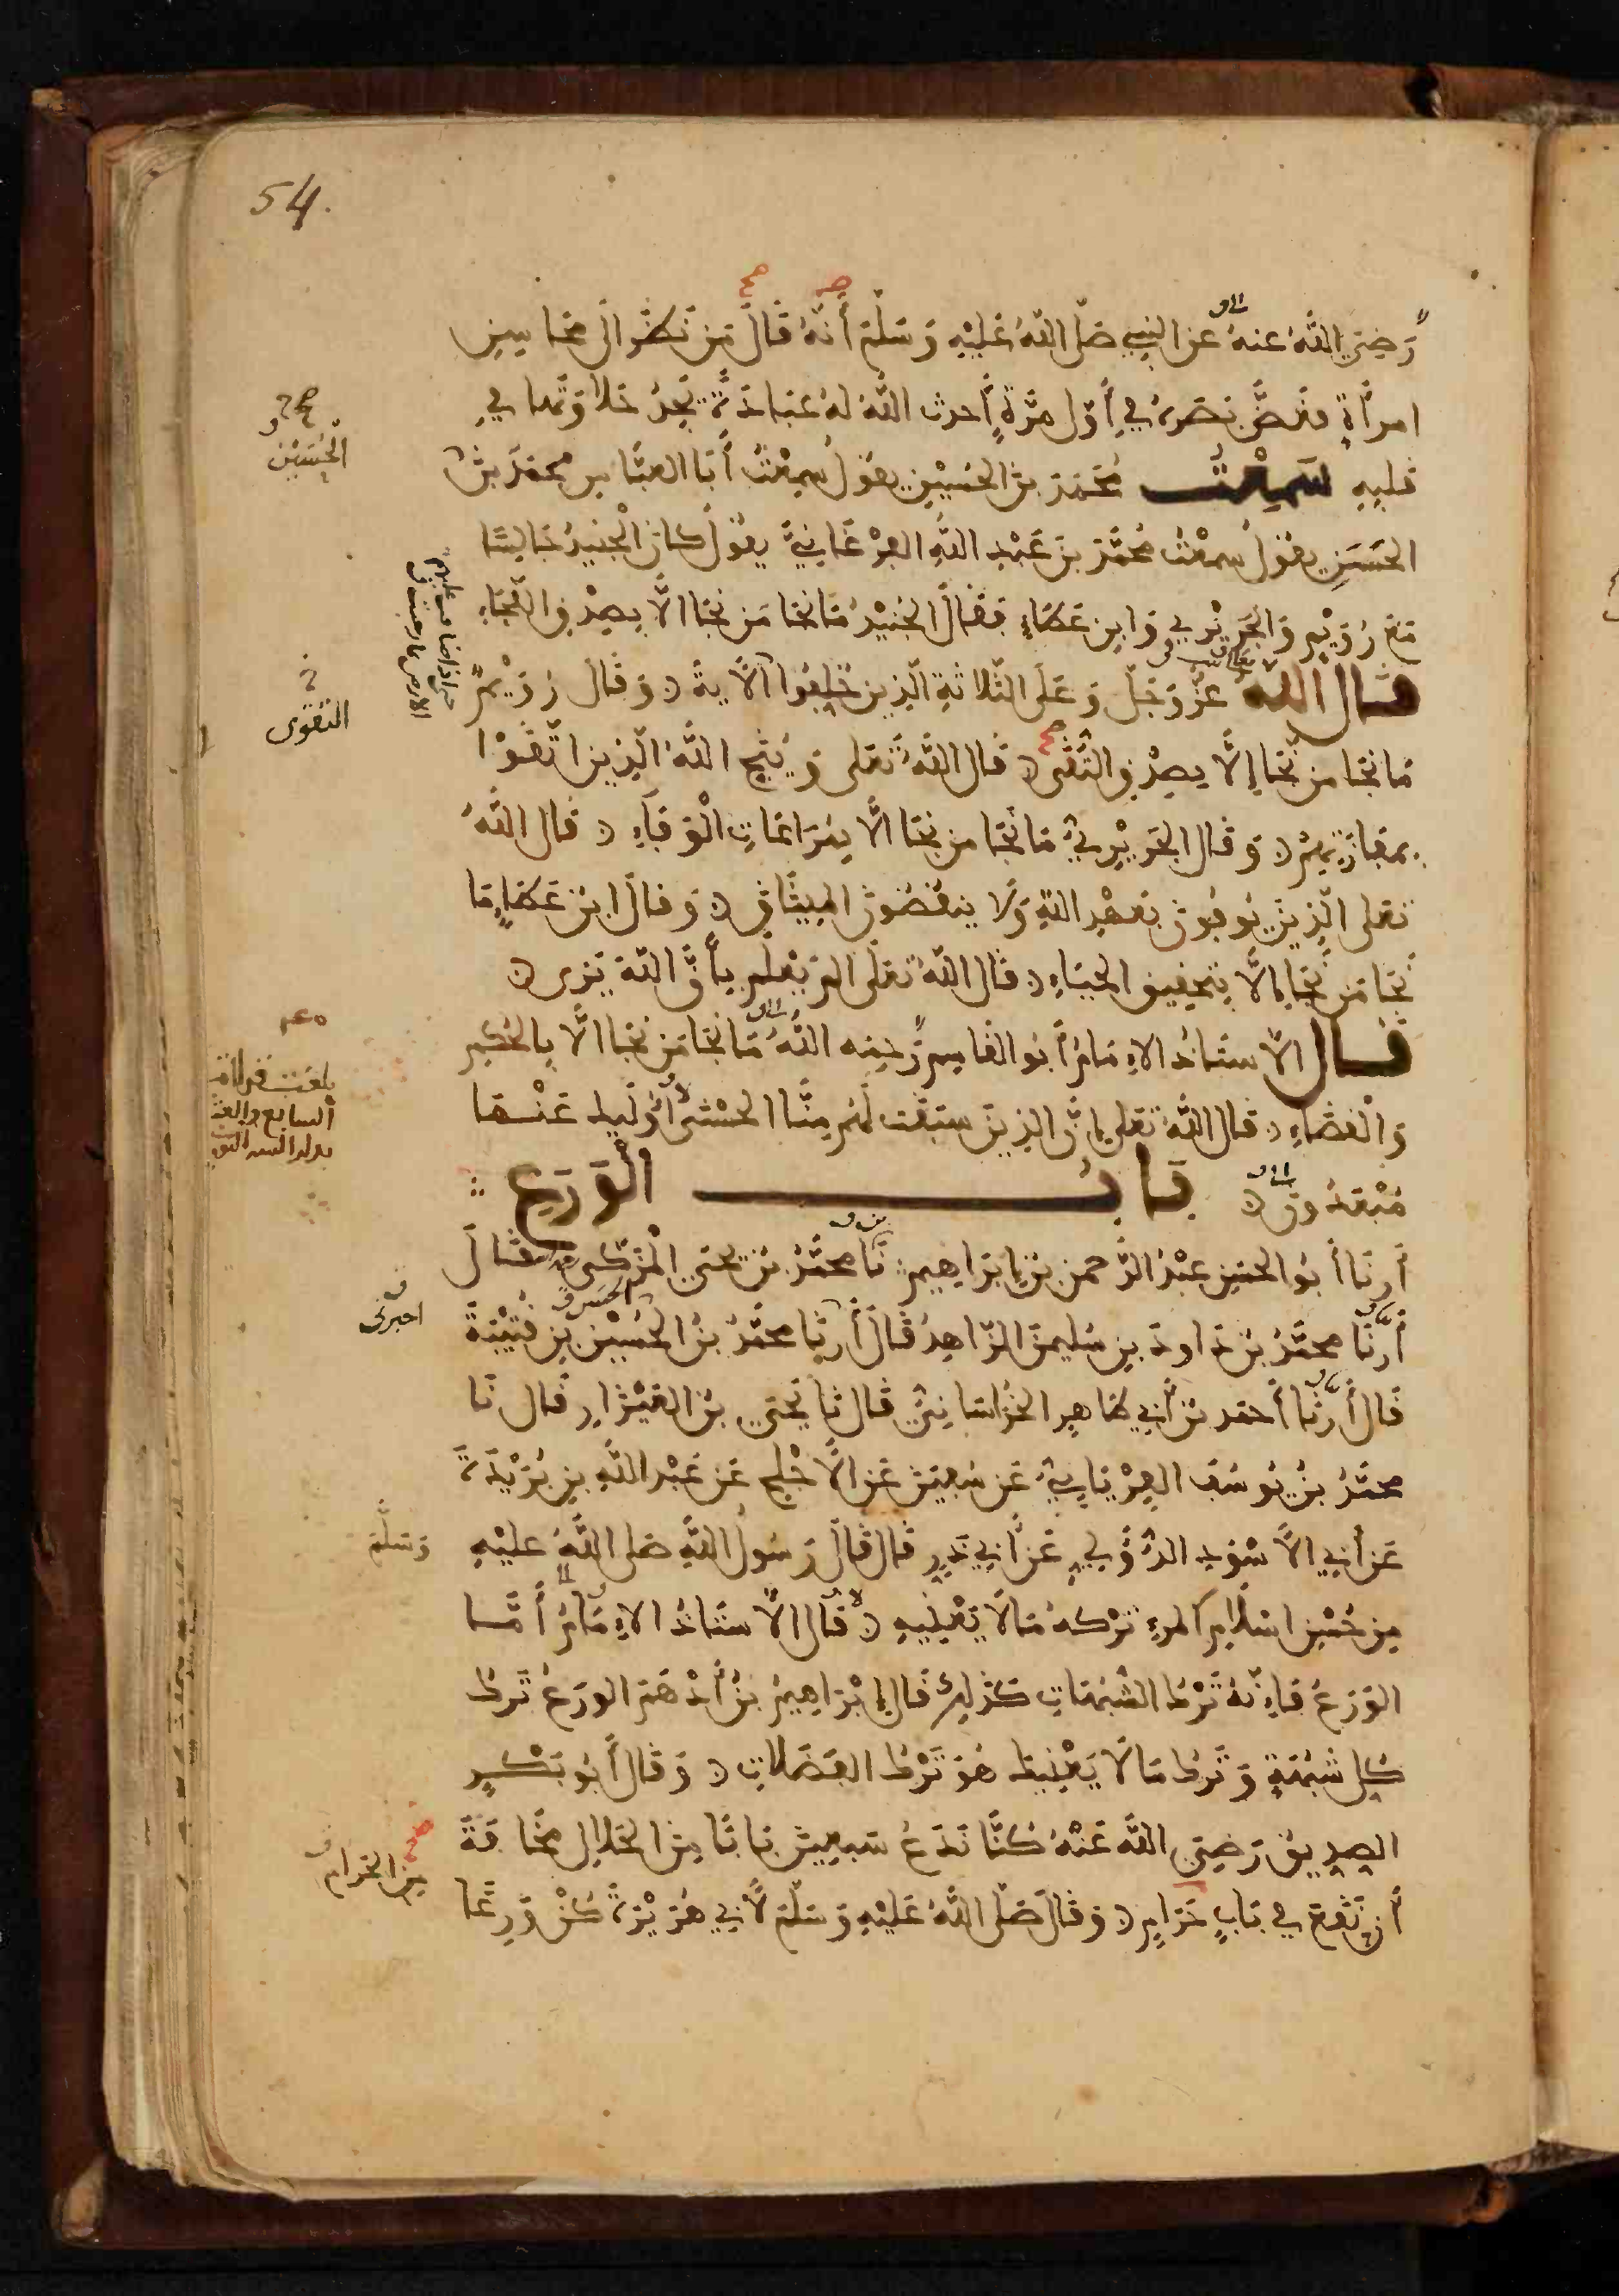 54.
رَضِيَ اللَّهُ عنهُ عن النبي صَلَّى اللهُ عَلَيْهِ وَسَلَّمَ أَنَّهُ قَالَ مَن نَظَرَ إلى محاسِن
امرأةٍ فغضَّ بَصَرَهُ في أوّل مَرَّةٍ أحدث اللَّهُ لهُ عبادَةً يَجِدُ حَلاوَتها في
قلبِهِ سَمِعْتُ مُحَمَّدَ بن الحُسَيْنِ يقولُ سَمِعْتُ أبا العبَّاس محمّدَ بنَ
الحَسَنِ يقولُ سمعْتُ محمَّدَ بنَ عَبْدِ اللهِ الفرْغَانِيَّ يقولُ كان الجُنيدُ جَالِسًا
مَعَ رُوَيْمٍ وَالجَرِيْرِي وَابنِ عَطَاءٍ فقَالَ الجُنَيْدُ مَا نَجَا مَن نجَا الَّا بِصِدْقِ اللَّجَاءِ
قَال اللهُ عزَّ وَجَلَّ وَعَلَى الثَّلاثَةِ الَّذِينَ خُلِّفُوا الآيةَ وَقَالَ رُوَيْمٌ
مَا نَجَا من نَجَا إلَّا بِصِدْقِ التُّقَى قَال اللهُ تَعَلى وَيُنَجِّي اللهُ الّذِينَ اتَّقَوْا
بمفازَتِهمْ وَقَال الجَرِيْرِيُّ مَا نَجَا من نجَا الَّا بمُرَاعَاتِ الْوَفَاءِ قال اللَّهُ
تَعَلى الّذِينَ يُوفُونَ بِعَهْدِ اللهِ وَلَا ينقُضُونَ المِيثَاقَ وَقَال ابنُ عَطَاءٍ مَا
نَجَا مَن نَجَا إلَّا بِتحقِيقِ الحَيَاءِ قَال اللهُ تَعَلى ألم يَعْلم بِأَنَّ اللهَ يَرَى
قَال الأستَاذُ الإمَامُ أبُو القاسِم رَحِمَه اللَّهُ مَا نَجَا مَن نَجَا الَّا بِالحُكْمِ
وَالْقَضَاءِ قَال اللهُ تَعَلى إنَّ الذِينَ سَبَقَت لَهُم مِنَّا الحُسْنَى أُولَئِكَ عَنْهَا
مُبْعَدُونَ بَابُ الْوَرَعِ
أرنَا أبُو الحسَينِ عَبْدُ الرَّحمن بن إبْرَاهِيم نَا محمَّدُ بنُ يحيَى المُزَكِّي قَال
أرنَا محمَّدُ بنُ دَاودَ بنِ سُليمنَ الزّاهِدُ قَالَ أرنَا محمَّدُ بنُ الحُسَيْنِ بنِ قُتَيْبَةَ
قَال أرنَا أحمدُ بنُ أبي طَاهِرٍ الخُراسَانِيُّ قَال نَا يَحْيَى بنُ العَيْزَارِ قَال نَا
محمَّدُ بنُ يُوسُفَ الفِرْيَابِيُّ عَن سُفينَ عَنِ الأَجْلَحِ عَن عَبْدِ اللَّهِ بنِ بُرَيْدَةَ
عَن أبِي الأَسْوَدِ الدُّؤَلِي عَن أبِي ذَرٍّ قَال قَالَ رَسُولُ اللهِ صَلَى اللَّهُ عَليْهِ
مِن حُسْنِ اسْلَامِ المرءِ تَرْكُهُ مَا لَا يَعْنِيهِ قَال الأُستَاذُ الإمَامُ أمَّا
الوَرَعُ فَإنَّهُ تَرْكُ الشُّبُهَاتِ كَذَلِكَ قَال إبْرَاهِيمُ بنُ أَدْهَمَ الورَعُ تَركُ
كُل شُبْهَةٍ وَتَركُ مَا لَا يَعْنِيكَ هُوَ تَرْكُ الفَضَلَاتِ وَقَال أبُو بَكْرٍ
الصِدِيقُ رَضِيَ اللَّهُ عَنْهُ كُنَّا نَدَعُ سَبعِينَ بَابًا مِنَ الحَلَالِ مَخَافَةَ
أن نَقَعَ في بَابٍ حَرَامٍ وَقَالَ صَلَّى اللهُ عَلَيْهِ وَسَلّمَ لأبي هُرَيْرَةَ كُنْ وَرِعًا
الحُسَيْن
التقوى
بلغت قراءة
السابع
اخبرنى
وَسَلَّمَ
مِن الحَرَامِ